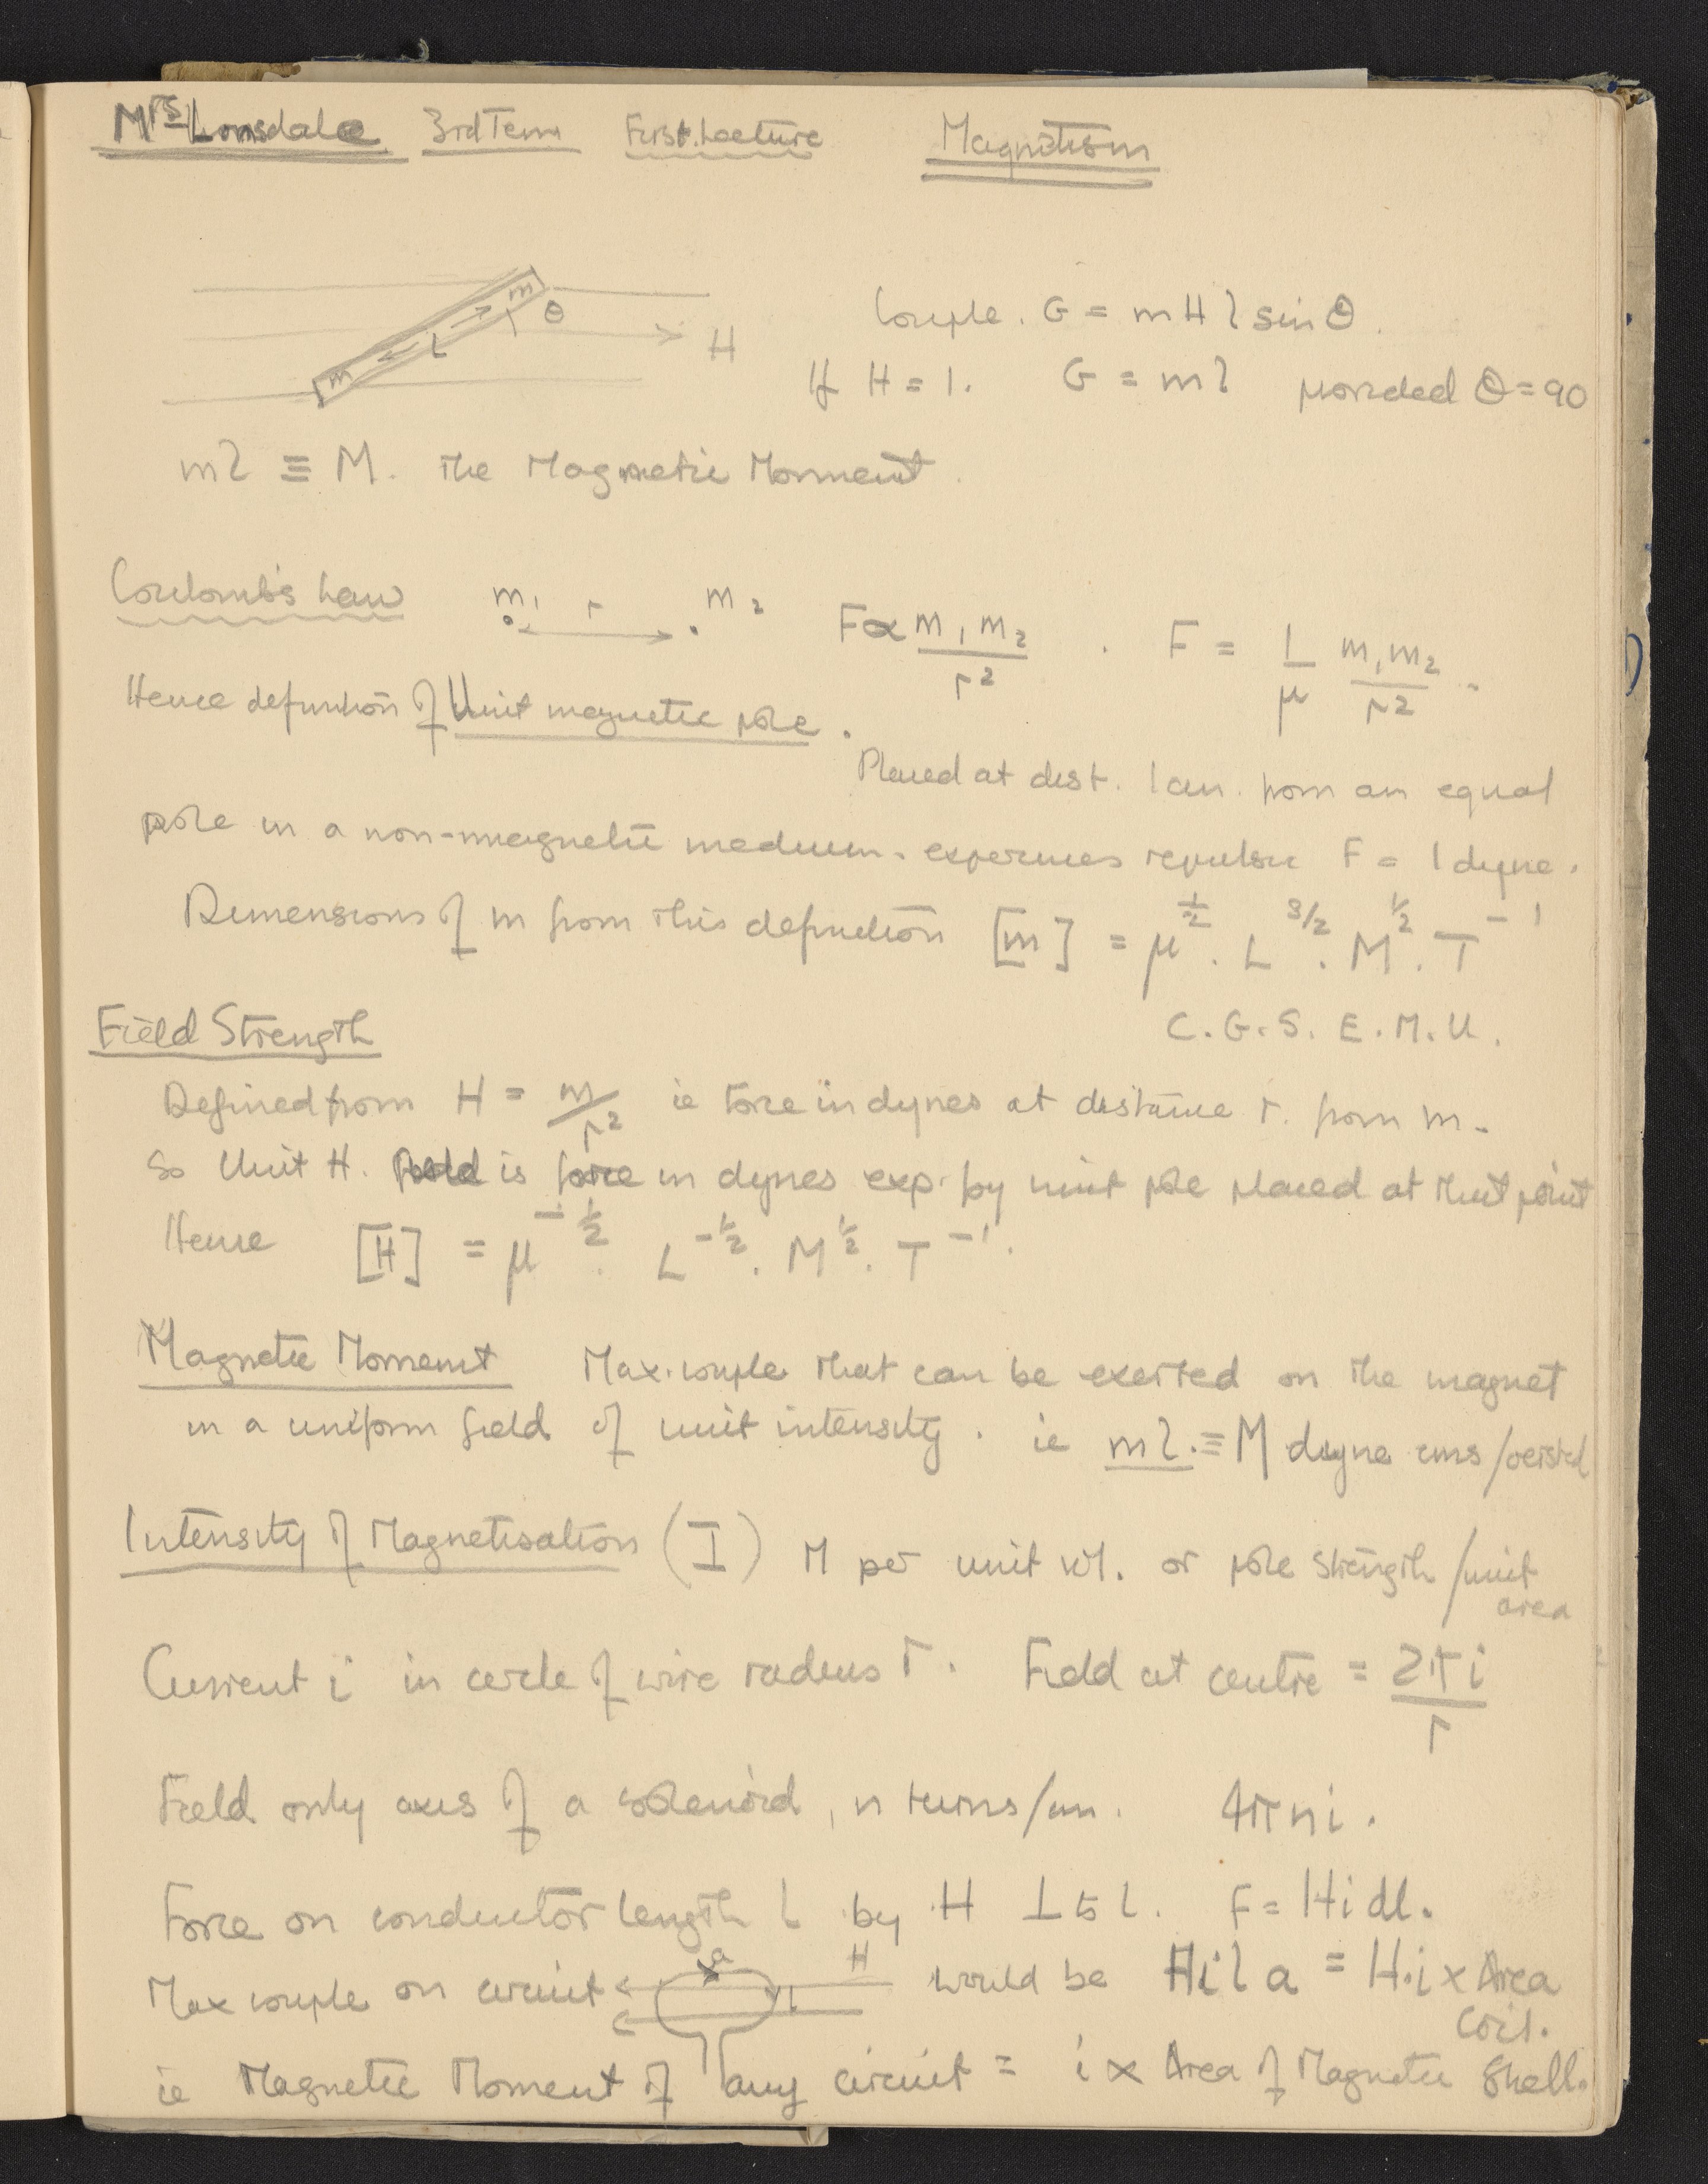 Mrs Lonsdale 3rd Term First Lecture Magnetism
m θ
l
H
m
Couple. G = m H l sin θ.
If H = 1. G = m l provided θ = 90
ml ≡ M. The Magnetic Moment.
Coulomb's Law m₁ r m₂ F ∝ m₁ m₂ / r² . F = 1/μ m₁ m₂ / r² .
Hence definition of Unit magnetic pole.
Placed at dist. 1 cm. from an equal
pole in a non-magnetic medium. experiences repulsive F = 1 dyne.
Dimensions of m from this definition [m] = μ^½ . L^3/2 . M^½ . T^-1
C.G.S. E.M.U.
Field Strength
Defined from H = m/r² ie Force in dynes at distance r. from m.
So Unit H. is force in dynes exp. by unit pole placed at that point
Hence [H] = μ^-½ . L^-½ . M^½ . T^-1 .
Magnetic Moment Max. couple that can be exerted on the magnet
in a uniform field of unit intensity. ie ml. ≡ M dyne cms/oersted
Intensity of Magnetisation (I) M per unit vol. or pole strength/unit
area
Current i in circle of wire radius r. Field at centre = 2πi / r
Field only axis of a solenoid, n turns/cm. 4πni.
Force on conductor length l by H ⊥ to l. F = Hidl.
Max couple on circuit a l H would be Hila = H.i x Area
Coil.
ie Magnetic Moment of any circuit = i x Area of Magnetic Shell.